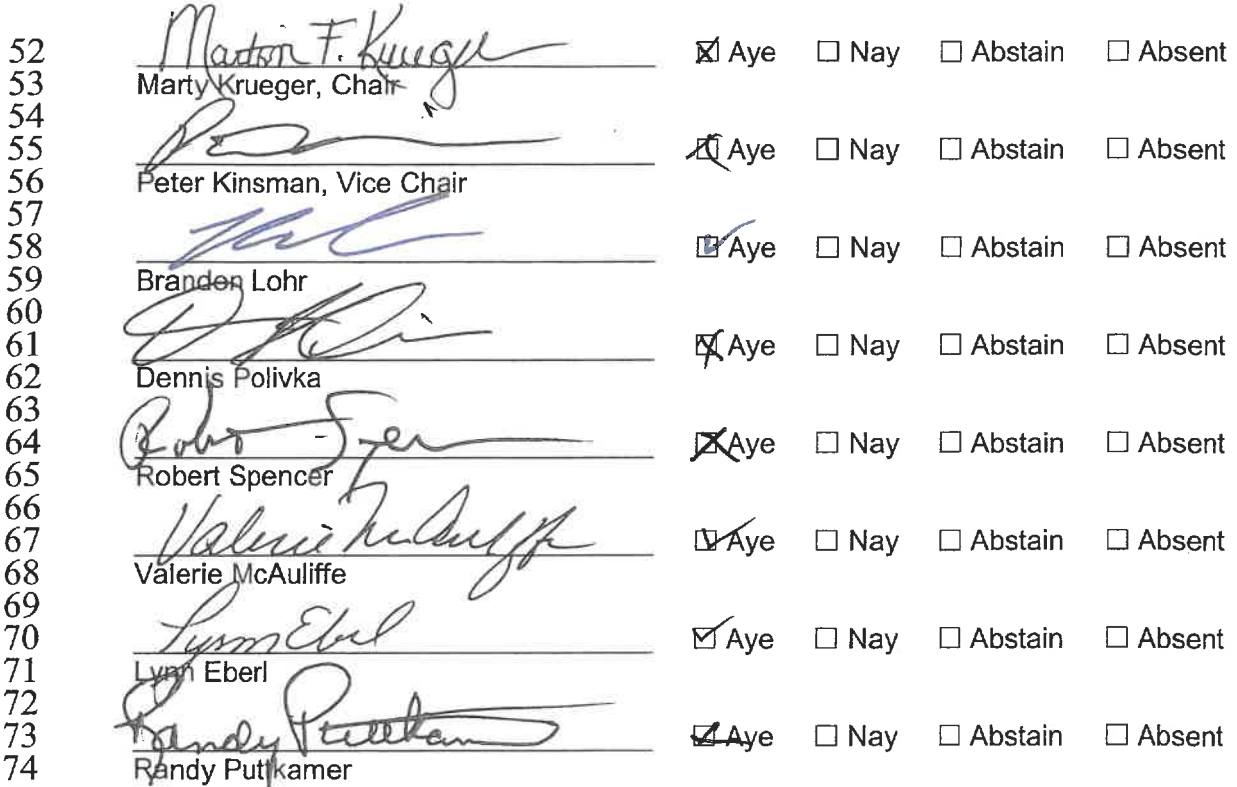 52 Martin F. Krueger ☒ Aye ☐ Nay ☐ Abstain ☐ Absent
53 Marty Krueger, Chair
54
55 ☒ Aye ☐ Nay ☐ Abstain ☐ Absent
56 Peter Kinsman, Vice Chair
57
58 ☑ Aye ☐ Nay ☐ Abstain ☐ Absent
59 Brandon Lohr
60
61 ☒ Aye ☐ Nay ☐ Abstain ☐ Absent
62 Dennis Polivka
63
64 ☒ Aye ☐ Nay ☐ Abstain ☐ Absent
65 Robert Spencer
66
67 Valerie McAuliffe ☑ Aye ☐ Nay ☐ Abstain ☐ Absent
68 Valerie McAuliffe
69
70 Lynn Eberl ☑ Aye ☐ Nay ☐ Abstain ☐ Absent
71 Lynn Eberl
72
73 Randy Puttkamer ☑ Aye ☐ Nay ☐ Abstain ☐ Absent
74 Randy Puttkamer